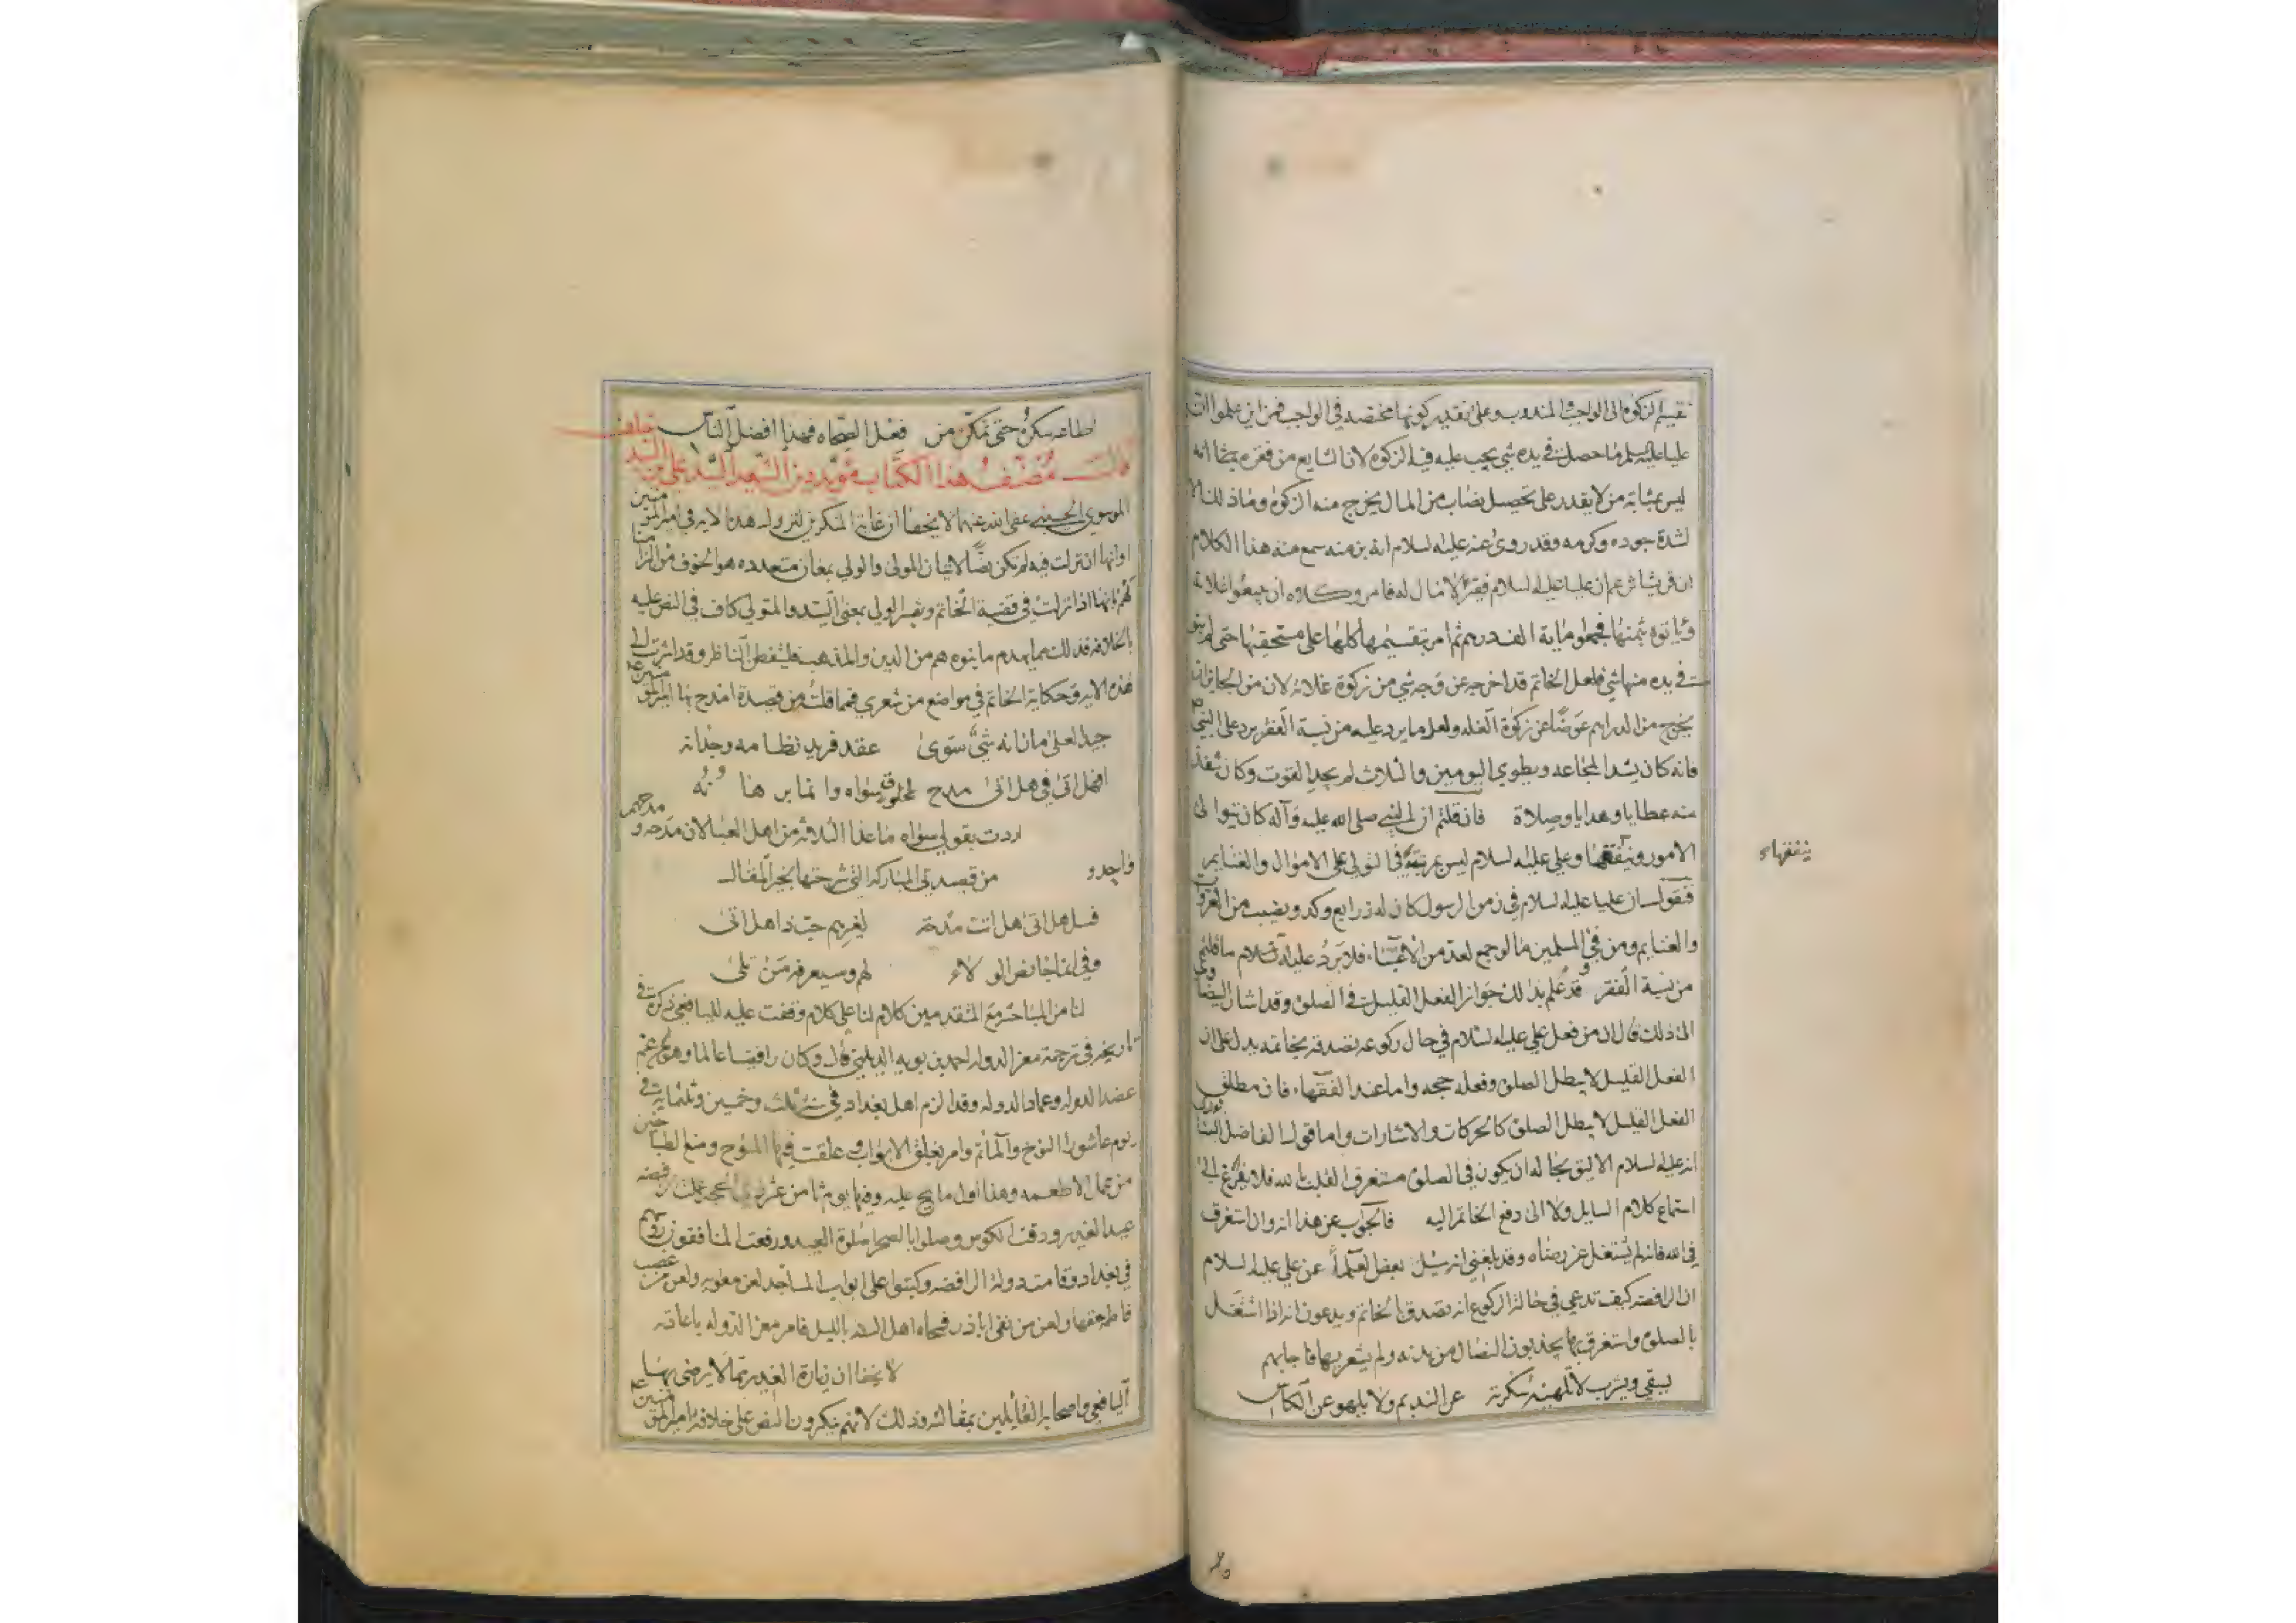 تقسيم الزكوة الى الواجب والمندوب وعلى تقدير كونها مختصه في الواجب فمن اين علموا ان
عليا عليه السلم ما حصل في يده شي يجب عليه فيه الزكوة لان الشايع من فقره
ليس بمثابة من لا يقدر على تحصيل نصاب من المال يخرج منه الزكوة وما ذلك الا
لشدة جوده وكرمه وقد روى عنه عليه السلام سمع منه هذا الكلام
ان قريشا تزعم ان عليا عليه السلام فقير لا مال له فامر وكلاوه ان يبيعوا غلاته
وياتوه بثمنها فجعلوا ماية الف درهم ثم امر بتقسيمها كلها على مستحقيها حتى لم يبق
في يده منها شي فلعل الخاتم قد اخرجه عن وجه شي من زكوة غلاته لان من الجايز انه
يخرج من الدراهم عوضا عن زكوة الغله ولعل ما يرد عليه من نسبة الفقر يرد على النبي ص
فانه كان يشد المجاعه ويطوي اليومين والثلاث لم يجد القوت وكان تنفذ
منه عطايا وهدايا وصلاة فان قلتم ان النبي صلى الله عليه وآله كان تتوالى
الامور وينفقها وعلي عليه السلام ليس بمرتبته في التولي على الاموال والغنايم
ينفقهاء
فنقول ان عليا عليه السلام في زمن الرسول كان له زرايع وكد ونصيب من الغزوات
والغنايم ومن فيء المسلمين ما لو جمع لعد من الاغنياء فلا يرد عليه السلام ما قلتم
من نسبة الفقر وقد علم بذلك جواز الفعل القليل في الصلوة وقد اشار البيضاوي
الى ذلك قال ان من فعل علي عليه السلام في حال ركوعه تصدقه بخاتمه يدل على ان
الفعل القليل لا يبطل الصلوة وفعله حجه واما عند الفقهاء فان مطلق
الفعل القليل لا يبطل الصلوة كالحركات والاشارات واما قول الفاضل
انه عليه السلام الاليق بحاله ان يكون في الصلوة مستغرق القلب لله فلا يفرغ الى
استماع كلام السايل ولا الى دفع الخاتم اليه فالجواب عن هذا انه وان استغرق
في الله فانه لم يشتغل عن رضاه وقد بلغني انه سئل بعض العلماء عن علي عليه السلام
ان الرافضه كيف تدعي في حالة الركوع انه تصدق بالخاتم ويدعون انه اذا اشتغل
بالصلوة واستغرق بها يجذبون النصال من بدنه ولم يشعر بها فاجابهم
يسقي ويشرب لا تلهيه سكرته عن النديم ولا يلهو عن الكاس
اطاعه سكره حتى تمكن من فعل الصحاه فهذا افضل الناس
قال مصنف هذا الكتاب السيد علي بن السيد خلف
الموسوي الحسيني عفى الله عنهما لا يخفى ان غاية المنكرين لنزول هذه الايه في امير المؤمنين
او انها ان نزلت فيه لم تكن نصا لاتيان المولى والولي بمعان متعدده هو الخوف من الزامنا
لهم بانها اذا نزلت في قضية الخاتم وتفسير الولي بمعنى السيد والمتولي كاف في النص عليه
بالخلافه فذلك مما يهدم ما بنوه هم من الدين والمذهب فليتفطن الناظر وقد اشرت الى
هذه الايه وحكاية الخاتم في مواضع من شعري فمما قلت من قصيدة امدح بها امير المؤمنين ع
جيد لعلى ما زانه شي سوى عقد فريد نظامه وجمانه
افهل اتى في هل اتى مدح لمخلوق سواه وانما برهانه
اردت بقولي سواه ما عدا الثلاثه من اهل العبا لان مدحه ومدحهم
واحد و من قصيدتي المباركه التي شرحتها بخير المقال
فسل هل اتى هل اتت مدحة لغيرهم حبذا هل اتى
وفي انما جا نص الولاء لهم وسيعرفه من تلى
لنا من المباحث مع المتقدمين كلام لنا على كلام وقفت عليه لليافعي ذكره في
تاريخه في ترجمة معز الدوله احمد بن بويه الديلمي قال وكان رافضيا عالما وهو عم
عضد الدوله وعماد الدوله وقد الزم اهل بغداد في سنة ثلث وخمسين وثلثمايه في
يوم عاشورا النوح والمآتم وامر بغلق الابواب علقت فيها المسوح ومنع الطباخين
من عمل الاطعمه وهذا اول ما نيح عليه وفيها يوم ثامن عشر ذي الحجه عملت الرافضه
عيد الغدير ودقت الكوس وصلوا بالصحرا صلوة العيد ورفعت المنافقون رؤسهم
في بغداد وقامت دولة الرافضه وكتبوا على ابواب المساجد لعن معويه ولعن من غصب
فاطمه حقها ولعن من نفى اباذر فمحاه اهل السنه بالليل فامر معز الدوله باعادته
لا يخفى ان زيارة الغدير مما لا يرضى بها
اليافعي واصحابه القايلين بمقالته وذلك لانهم ينكرون النص على خلافة امير المؤمنين ع